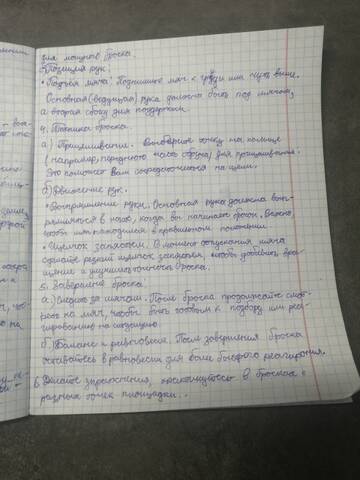 для мощного броска.
Позиция рук:
• Подъём мяча: Поднимите мяч к груди или чуть выше.
Основная (ведущая) рука должна быть под мячом,
а вторая сбоку для поддержки.
4. Техника броска
а) Прицеливание. Выберите точку на кольце
(например, переднюю часть обруча) для прицеливания.
Это поможет Вам сосредоточиться на цели.
б) Движение рук.
• Выпрямление руки. Основная рука должна выпрямляться в
когда вы начинаете бросок. Важно,
чтобы оставалась в правильном положении
• Щелчок запястьем. В момент отпускания мяча
сделайте резкий щелчок запястьем, чтобы добавить вращение и улучшить точность броска.
5. Завершение броска.
а.) Следите за мячом. После броска продолжайте смотреть на мяч, чтобы быть готовым к подбору или реагированию на ситуацию
б.) Баланс и равновесие. После завершения броска
оставайтесь в равновесии для более быстрого реагирования.
6. Делайте упражнения, практикуйтесь в бросках с
разных точек площадки.